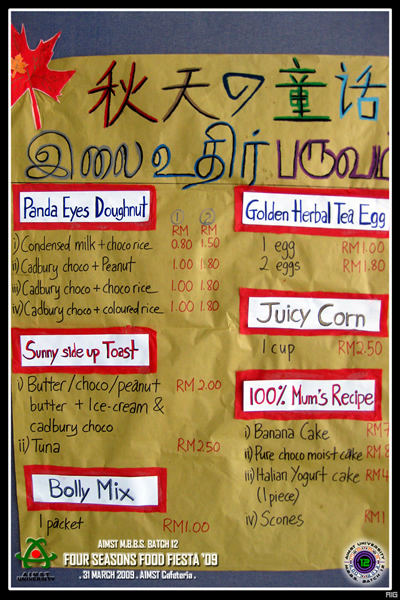 秋天の童话
இலை உதிர் பருவம்
Panda Eyes Doughnut
① ②
RM RM
i) Condensed milk + choco rice 0.80 1.50
ii) Cadbury choco + Peanut 1.00 1.80
iii) Cadbury choco + choco rice 1.00 1.80
iv) Cadbury choco + coloured rice 1.00 1.80
Sunny side up Toast
i) Butter/choco/peanut RM 2.00
butter + Ice-cream &
cadbury choco
ii) Tuna RM 2.50
Bolly Mix
1 packet RM1.00
Golden Herbal Tea Egg
1 egg RM1.00
2 eggs RM1.80
Juicy Corn
1 cup RM2.50
100% Mum's Recipe
i) Banana Cake RM 7
ii) Pure choco moist cake RM 8
iii) Italian Yogurt cake RM 4
(1 piece)
iv) Scones RM 1
AIMST M.B.B.S. BATCH 12
FOUR SEASONS FOOD FIESTA '09
. 31 MARCH 2009 . AIMST Cafeteria .
AIMST
UNIVERSITY
AIMST UNIVERSITY
12
AIG